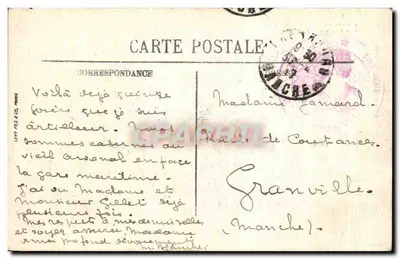 CARTE POSTALE
CORRESPONDANCE
Voilà déjà quinze
jours que je suis
artilleur. Nous
sommes casernés au
vieil Arsenal en face
la gare maritime.
J'ai vu Madame et
Monsieur Gallet déjà
plusieurs fois.
Mes respects à mesdemoiselles
et soyez assurée Madame
dévouement
Madame
Route de Coutances
Granville
(Manche)
MANCHE